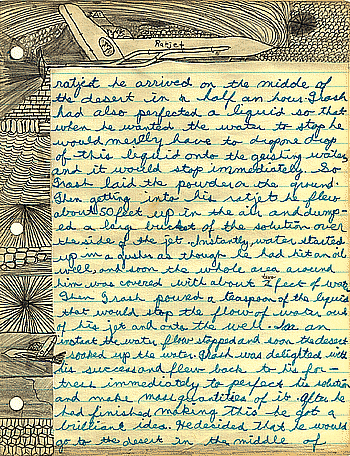 Ratjet
ratjet he arrived on the middle of
the desert in a half an hour. Trash
had also perfected a liquid so that
when he wanted the water to stop he
would merely have to drop one drop
of this liquid onto the geisting water
and it would stop immediately. So
Trash laid the powder on the ground.
Then getting into his ratjet he flew
about 50 feet up in the air and dump-
ed a large bucket of the solution over
the side of the jet. Instantly water started
up in a gusher as though he had hit an oil
well, and soon the whole area around
him was covered with about two feet of water
Then Trash poured a teaspoon of the liquid
that would stop the flow of water out
of his jet and onto the well. In an
instant the water flow stopped and soon the desert
soaked up the water. Trash was delighted with
his success and flew back to his for-
tress immediately to perfect his solution
and make mass quantities of it. After he
had finished making this he got a
brilliant idea. He decided that he would
go to the desert in the middle of